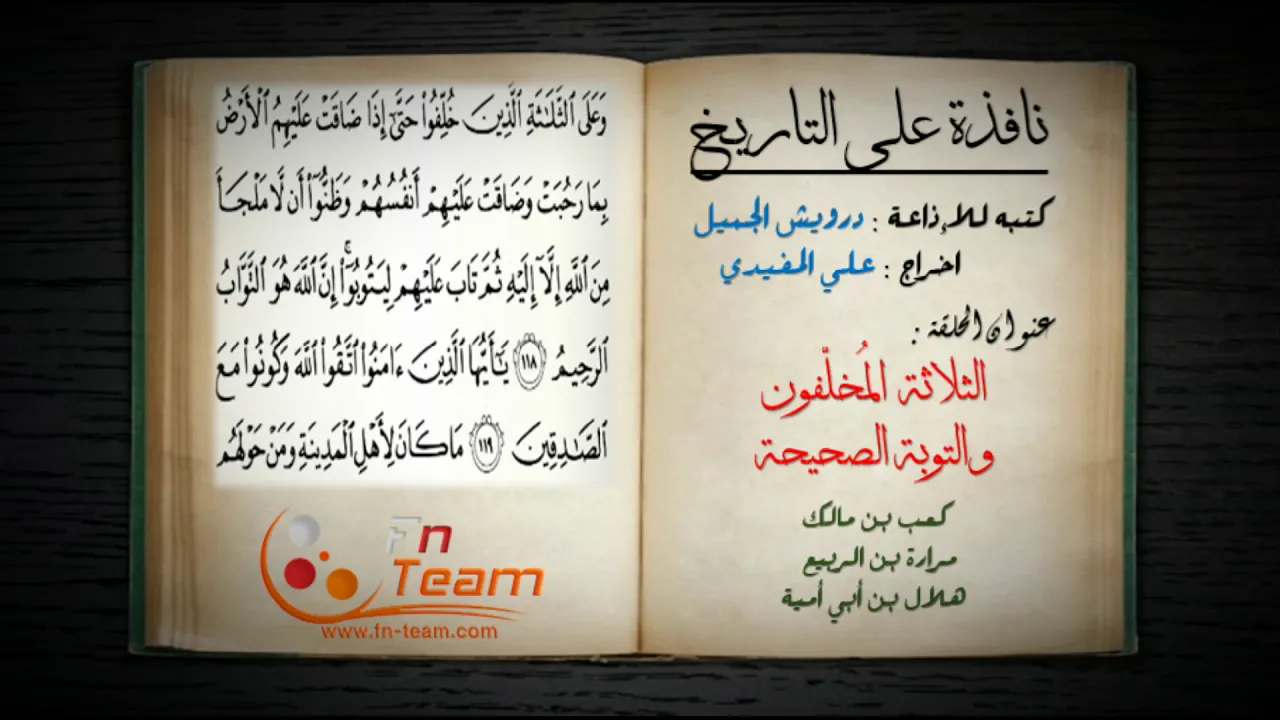 نافذة على التاريخ
كتبه للإذاعة : درويش الجميل
اخراج : علي المفيدي
عنوان الحلقة :
الثلاثة المُخلّفون
والتوبة الصحيحة
كعب بن مالك
مرارة بن الربيع
هلال بن أبي أمية
وَعَلَى ٱلثَّلَٰثَةِ ٱلَّذِينَ خُلِّفُوا۟ حَتَّىٰٓ إِذَا ضَاقَتْ عَلَيْهِمُ ٱلْأَرْضُ
بِمَا رَحُبَتْ وَضَاقَتْ عَلَيْهِمْ أَنفُسُهُمْ وَظَنُّوٓا۟ أَن لَّا مَلْجَأَ
مِنَ ٱللَّهِ إِلَّآ إِلَيْهِ ثُمَّ تَابَ عَلَيْهِمْ لِيَتُوبُوٓا۟ ۚ إِنَّ ٱللَّهَ هُوَ ٱلتَّوَّابُ
ٱلرَّحِيمُ ١١٨ يَٰٓأَيُّهَا ٱلَّذِينَ ءَامَنُوا۟ ٱتَّقُوا۟ ٱللَّهَ وَكُونُوا۟ مَعَ
ٱلصَّٰدِقِينَ ١١٩ مَا كَانَ لِأَهْلِ ٱلْمَدِينَةِ وَمَنْ حَوْلَهُم
Fn
Team
www.fn-team.com